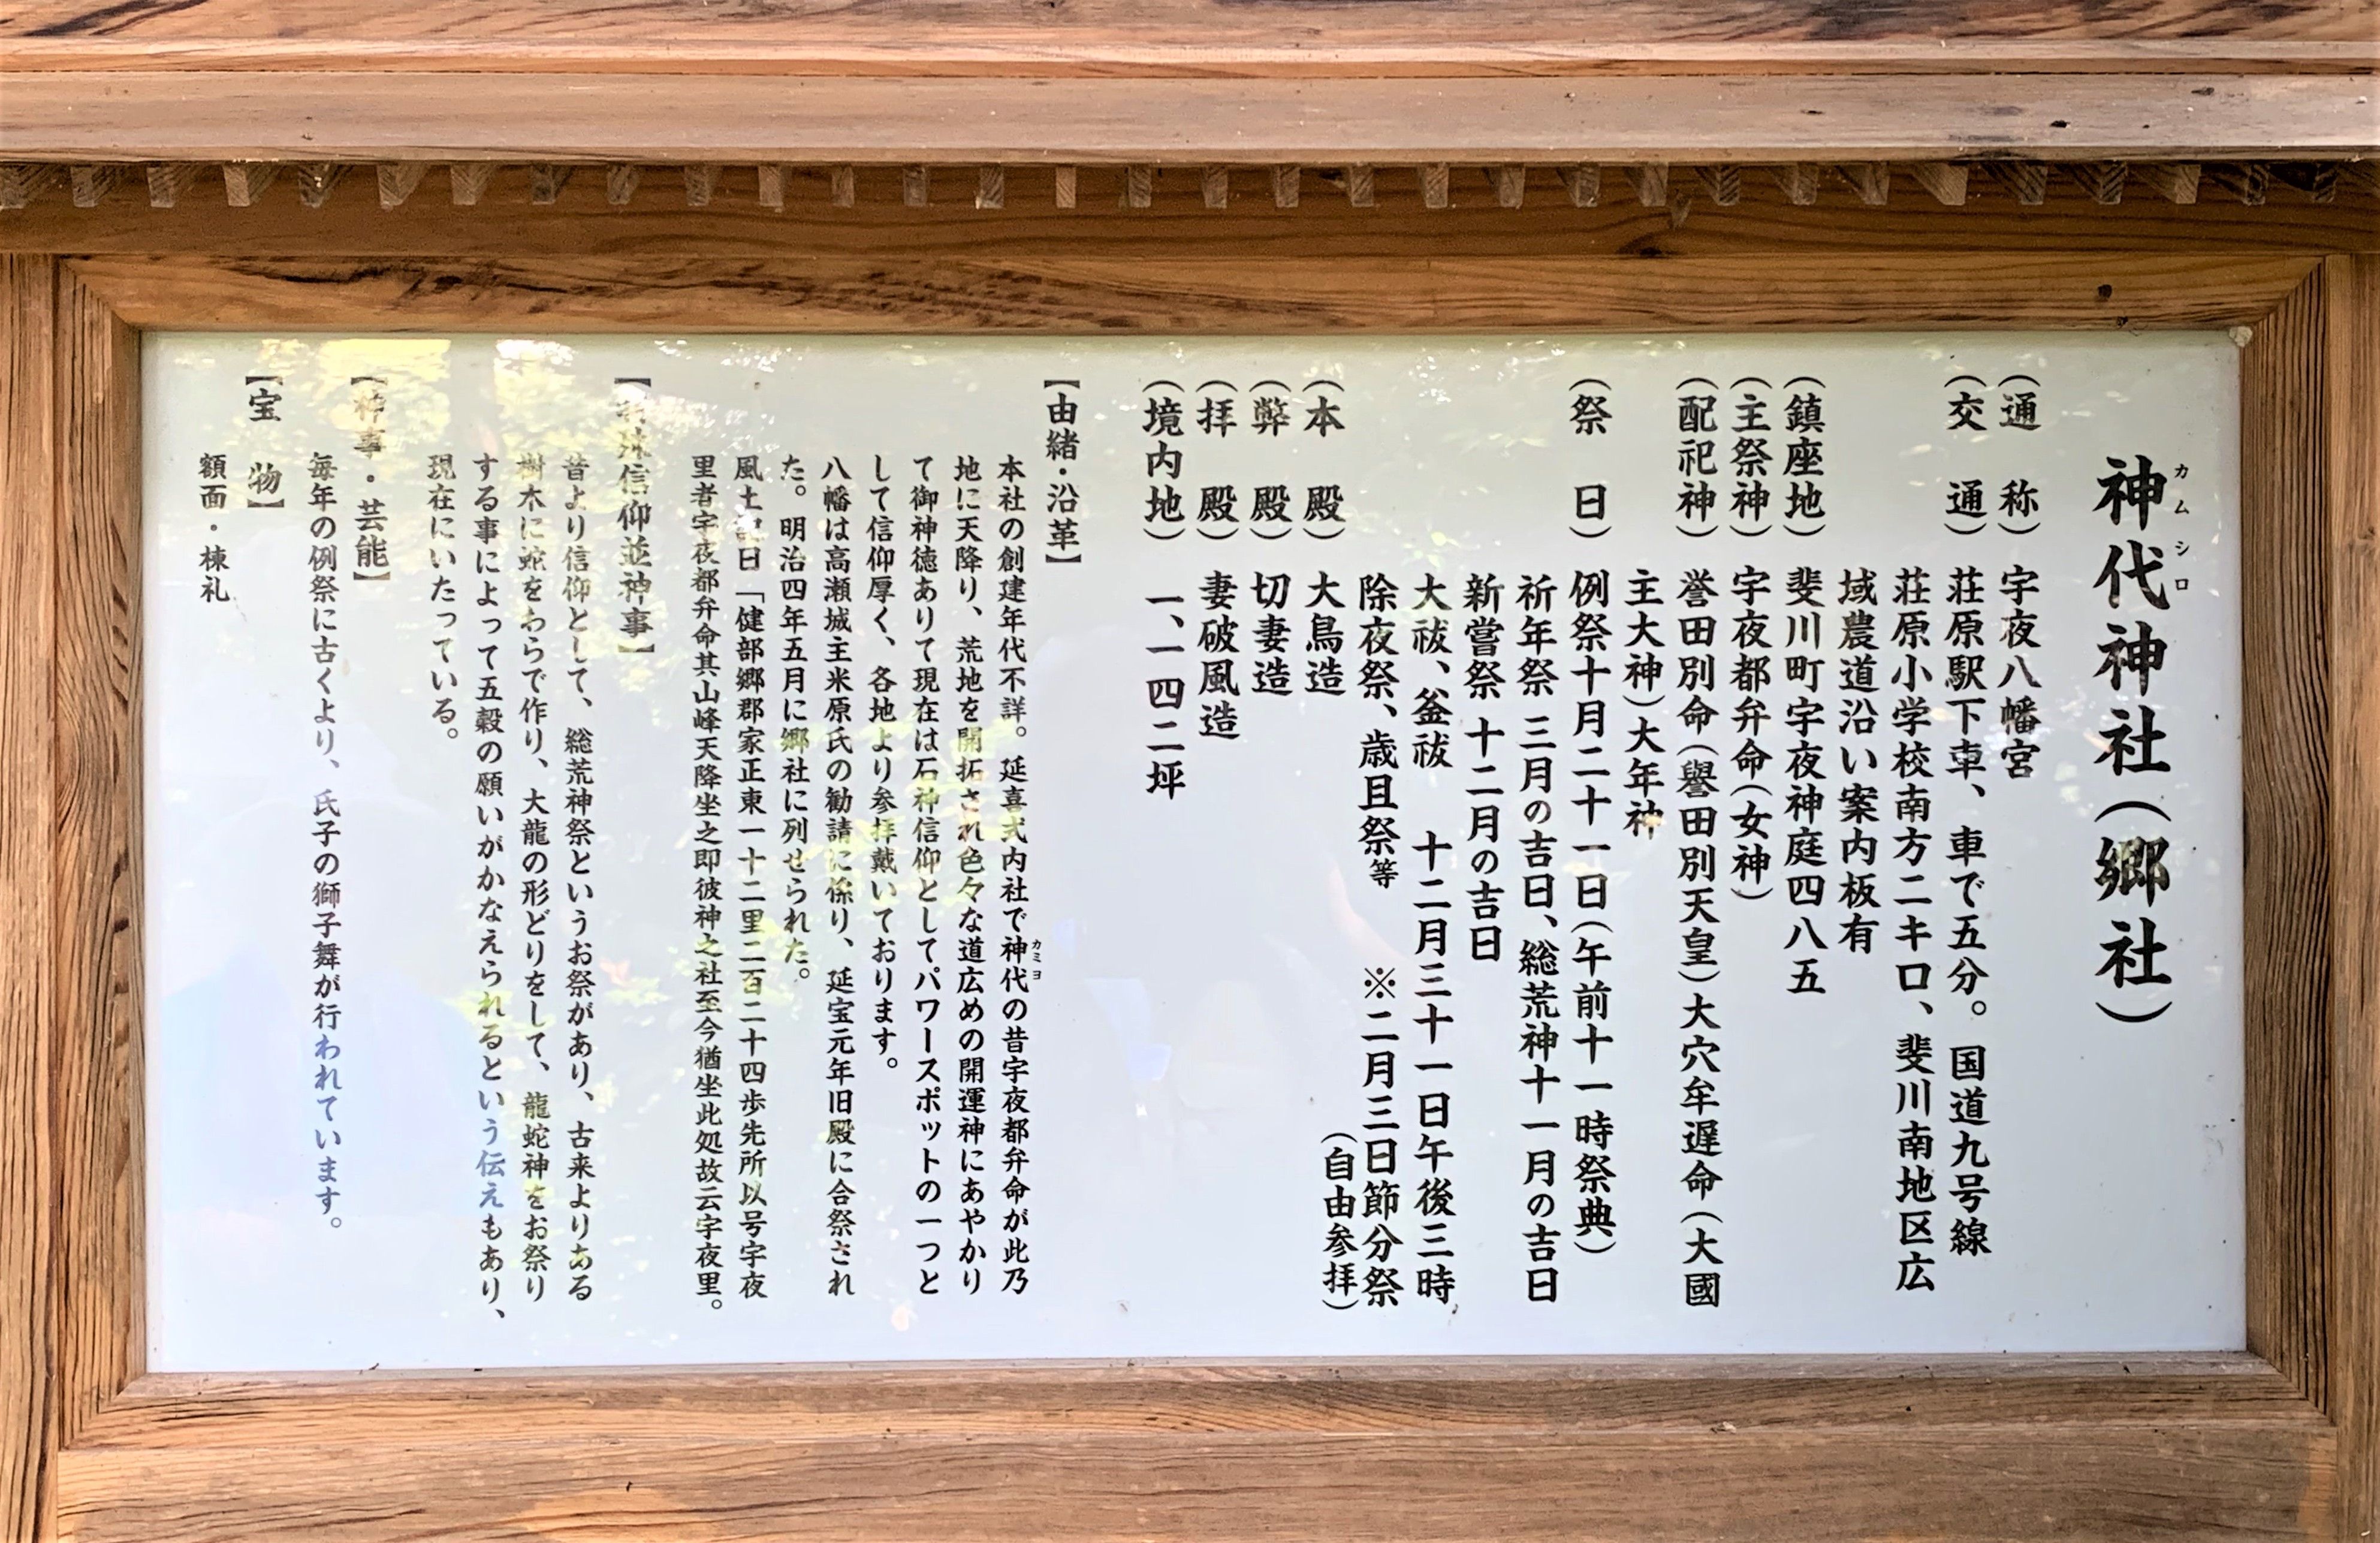 神代神社(郷社)
カムシロ
(通 称) 宇夜八幡宮
(交 通) 荘原駅下車、車で五分。国道九号線
荘原小学校南方二キロ、斐川南地区広
域農道沿い案内板有
(鎮座地) 斐川町宇夜神庭四八五
(主祭神) 宇夜都弁命(女神)
(配祀神) 誉田別命(譽田別天皇)大穴牟遅命(大國
主大神)大年神
(祭 日) 例祭十月二十一日(午前十一時祭典)
祈年祭 三月の吉日、総荒神十一月の吉日
新嘗祭 十二月の吉日
大祓、釜祓 十二月三十一日午後三時
除夜祭、歳旦祭等 ※二月三日節分祭
(自由参拝)
(本 殿) 大鳥造
(弊 殿) 切妻造
(拝 殿) 妻破風造
(境内地) 一、一四二坪
【由緒・沿革】
本社の創建年代不詳。延喜式内社で神代の昔宇夜都弁命が此乃
カミヨ
地に天降り、荒地を開拓され色々な道広めの開運神にあやかり
て御神徳ありて現在は石神信仰としてパワースポットの一つと
して信仰厚く、各地より参拝戴いております。
八幡は高瀬城主米原氏の勧請に係り、延宝元年旧殿に合祭され
た。明治四年五月に郷社に列せられた。
風土記曰「健部郷郡家正東一十二里二百二十四歩先所以号宇夜
里者宇夜都弁命其山峰天降坐之即彼神之社至今猶坐此処故云宇夜里。
【特殊信仰並神事】
昔より信仰として、総荒神祭というお祭があり、古来よりある
樹木に蛇をわらで作り、大龍の形どりをして、龍蛇神をお祭り
する事によって五穀の願いがかなえられるという伝えもあり、
現在にいたっている。
【神事・芸能】
毎年の例祭に古くより、氏子の獅子舞が行われています。
【宝 物】
額面・棟札